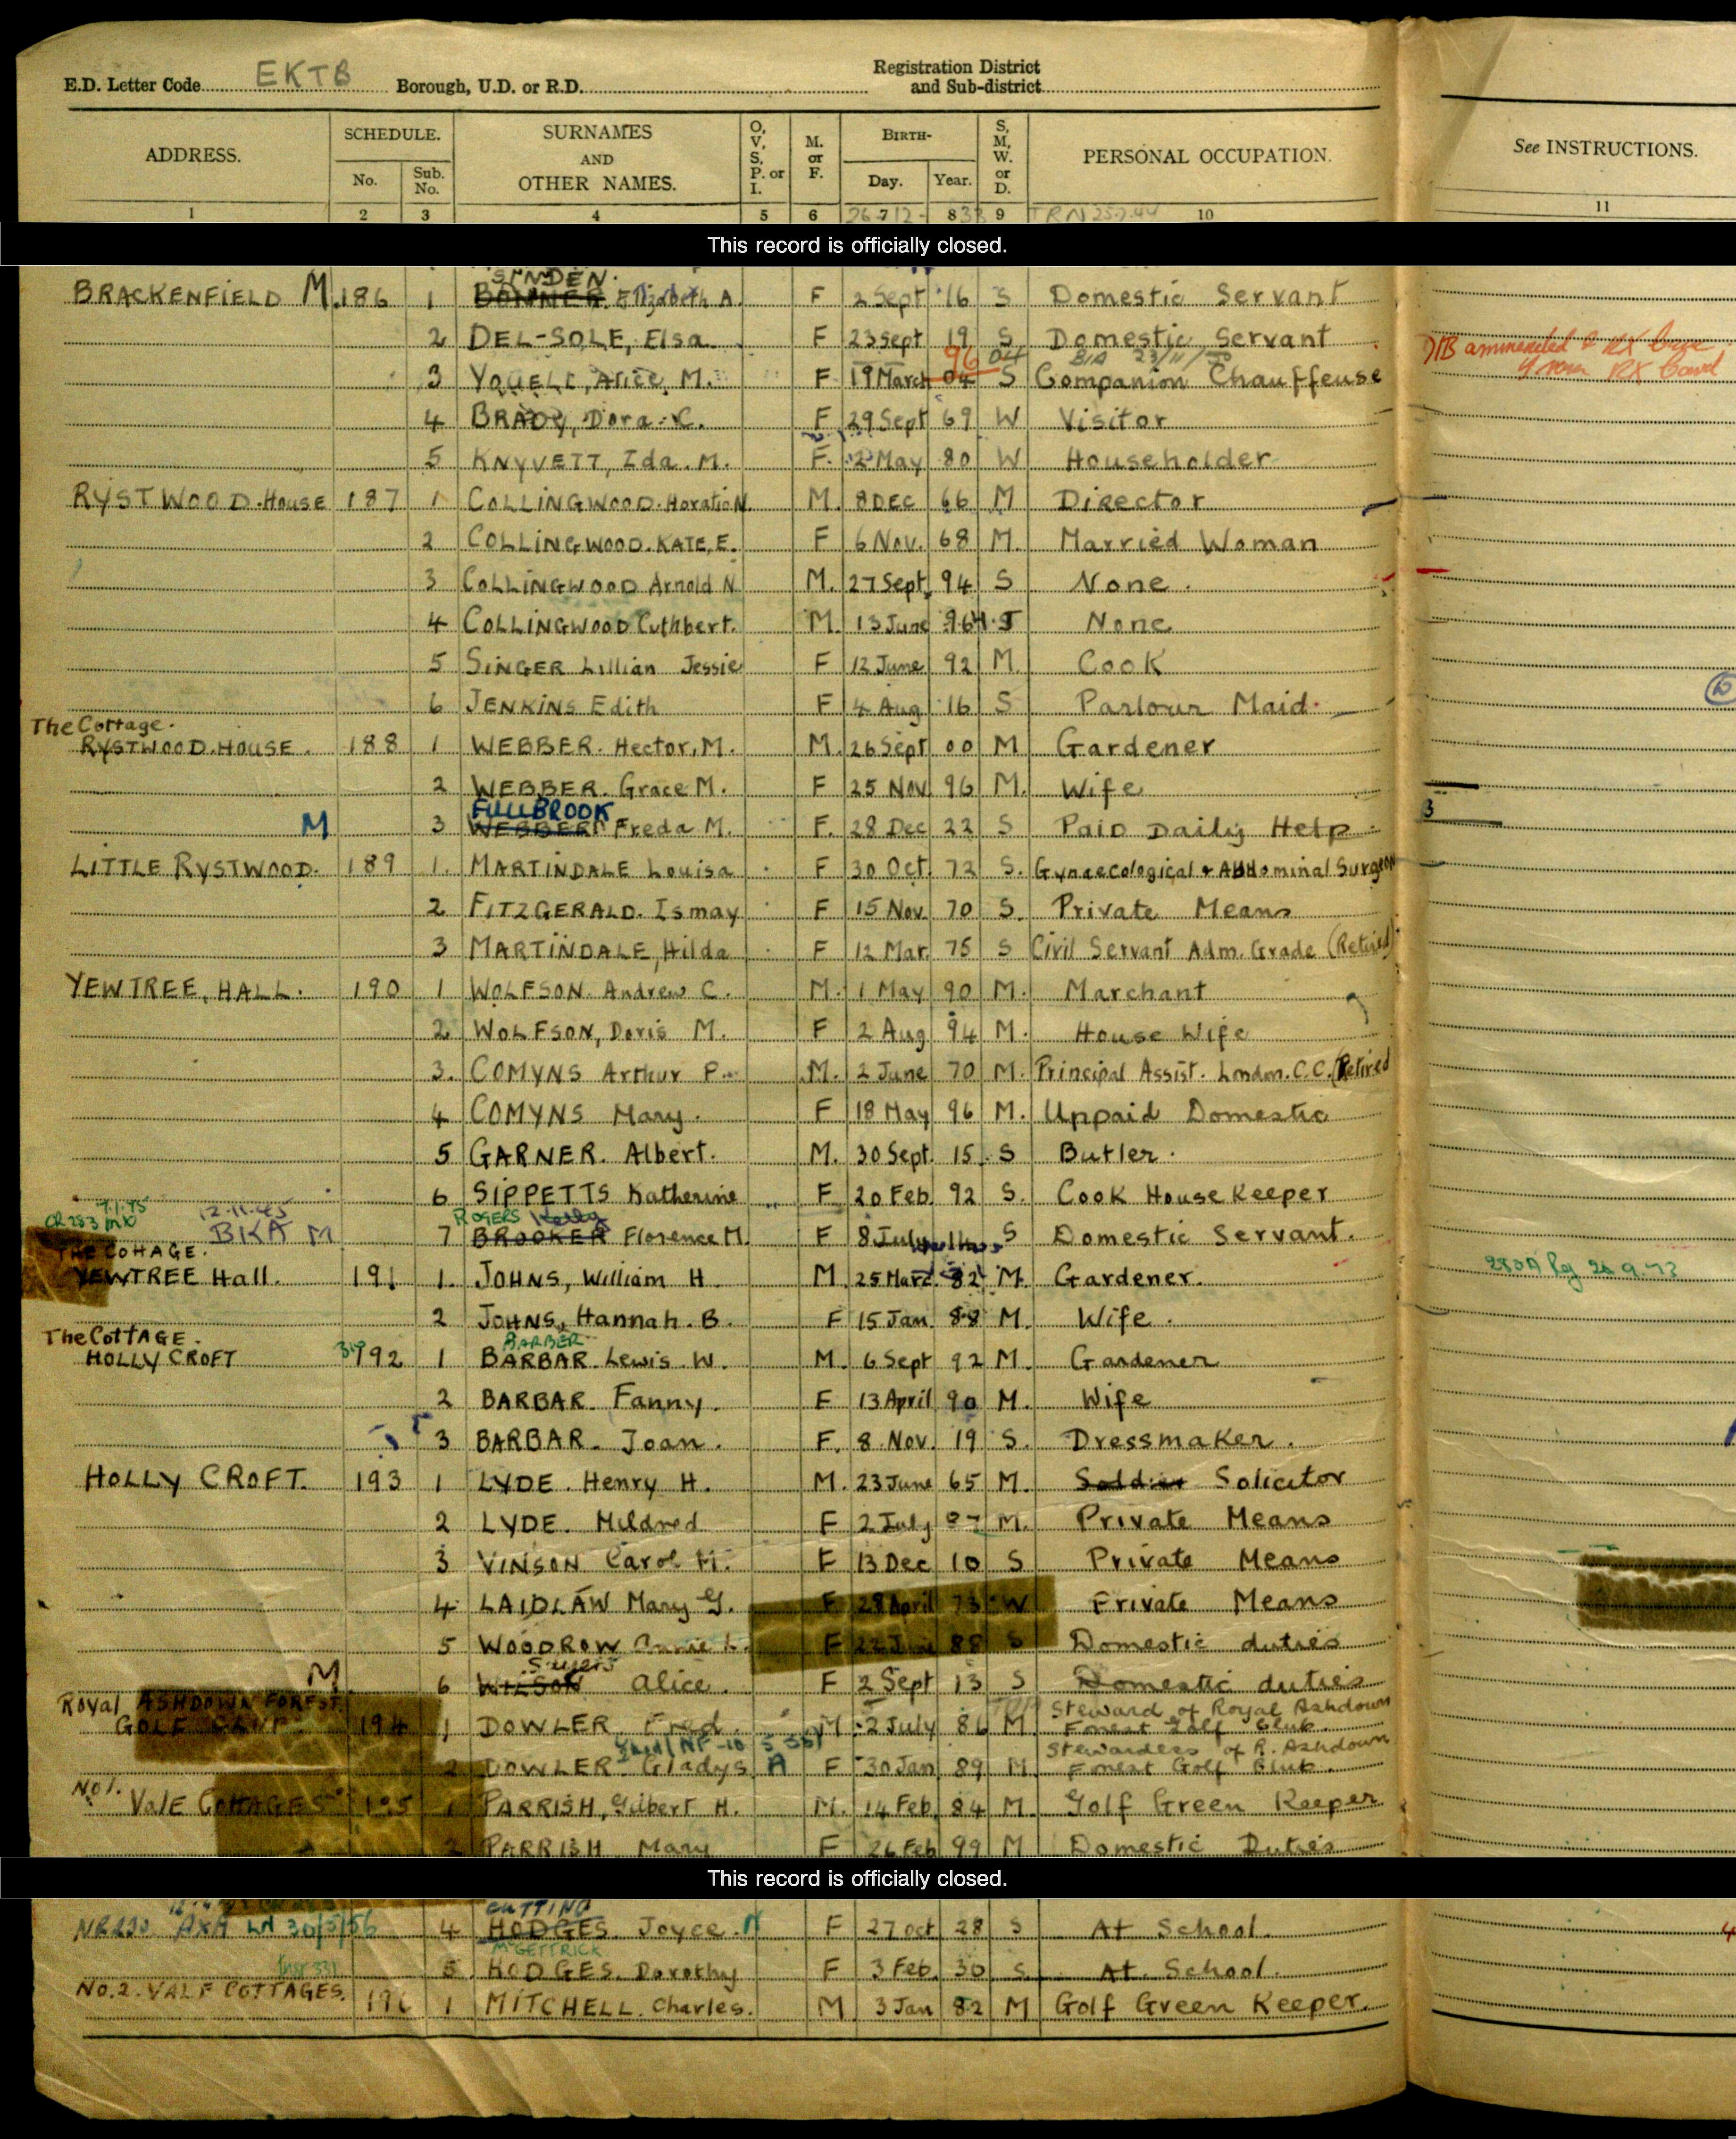 E.D. Letter Code EKTB Borough, U.D. or R.D. Registration District and Sub-district
ADDRESS. SCHEDULE. No. Sub. No. SURNAMES AND OTHER NAMES. O, V, S, P. or I. M. or F. BIRTH- Day. Year. S, M, W. or D. PERSONAL OCCUPATION. See INSTRUCTIONS.
1 2 3 4 5 6 7 8 9 10 11
This record is officially closed.
SENDEN.
BRACKENFIELD M. 186 1 BONNER Elizabeth A. F 2 Sept 16 S Domestic Servant
2 DEL-SOLE, Elsa. F 23 Sept 19 S Domestic Servant
96 04 23/11/50
3 YOUELL, Alice, M. F 19 March 04 S Companion Chauffeuse
4 BRADY, Dora. C. F 29 Sept 69 W Visitor
5 KNYVETT, Ida. M. F. 2 May 80 W Householder
RYSTWOOD. House 187 1 COLLINGWOOD. Horatio N. M. 8 DEC 66 M Director
2 COLLINGWOOD. KATE, E. F 6 Nov. 68 M. Married Woman
3 COLLINGWOOD Arnold N M. 27 Sept. 94 S None.
4 COLLINGWOOD Cuthbert. M. 13 June None
5 SINGER Lillian Jessie F 12 June 92 M. Cook
6 JENKINS Edith F 4 Aug 16 S Parlour Maid.
The Cottage.
RYSTWOOD. HOUSE. 188 1 WEBBER. Hector, M. M. 26 Sept 00 M Gardener
2 WEBBER. Grace M. F 25 Nov 96 M. Wife
FULLBROOK
M 3 WEBBER Freda M. F. 28 Dec 22 S Paid Daily Help
LITTLE RYSTWOOD. 189 1. MARTINDALE Louisa F 30 Oct 72 S. Gynaecological & Abdominal Surgeon
2 FITZGERALD. Ismay F 15 Nov 70 S. Private Means
3 MARTINDALE, Hilda F 12 Mar. 75 S Civil Servant Adm. Grade (Retired)
YEWTREE, HALL. 190 1 WOLFSON. Andrew C. M. 1 May 90 M. Marchant
2 WOLFSON, Doris M. F 2 Aug 94 M. House Wife
3. COMYNS Arthur P. M. 2 June 70 M. Principal Assist. London. C.C. (Retired
4 COMYNS Mary. F 18 May 96 M. Unpaid Domestic
5 GARNER. Albert. M. 30 Sept. 15. S Butler.
6 SIPPETTS Katherine F 20 Feb. 92 S. Cook House Keeper
12.11.45
ROGERS Kelly
BKA M 7 BROOKER Florence M. F 8 July S Domestic Servant.
THE COTTAGE.
YEWTREE Hall. 191 1. JOHNS, William H. M 25 Mar 82 M. Gardener.
2 JOHNS, Hannah. B. F 15 Jan. 88 M. Wife.
The COTTAGE. BARBER
HOLLY CROFT 192 1 BARBAR. Lewis. W. M. 6 Sept 92 M. Gardener
2 BARBAR. Fanny. F 13 April 90 M. Wife
3 BARBAR. Joan. F. 8. Nov. 19 S. Dressmaker.
HOLLY CROFT. 193 1 LYDE. Henry H. M. 23 June 65 M. Soldier Solicitor
2 LYDE. Mildred F 2 July M. Private Means
3 VINSON Carol H. F 13 Dec 10 S Private Means
4 LAIDLAW Mary G. F 28 April 73 W Private Means
5 WOODROW Annie L. F 22 June 88 S Domestic duties
M 6 WILSON Alice. F 2 Sept 13 S Domestic duties
Royal ASHDOWN FOREST. Steward of Royal Ashdown
GOLF CLUB. 194 1 DOWLER, Fred. M 2 July 86 M. Forest Golf Club.
Stewardess of R. Ashdown
2 DOWLER Gladys A F 30 Jan. 89 M. Forest Golf Club.
No 1.
VALE COTTAGES 195 1 PARRISH, Gilbert H. M. 14 Feb. 84 M. Golf Green Keeper
2 PARRISH Mary F 26 Feb 99 M Domestic Duties
This record is officially closed.
CUTTING
AXA LN 30/5/56 4 HODGES. Joyce. F 27 Oct 28 S At School.
McGETTRICK
5 HODGES. Dorothy F 3 Feb. 30 S. At. School.
NO. 2. VALE COTTAGES. 196 1 MITCHELL. Charles. M 3 Jan 82 M Golf Green Keeper.